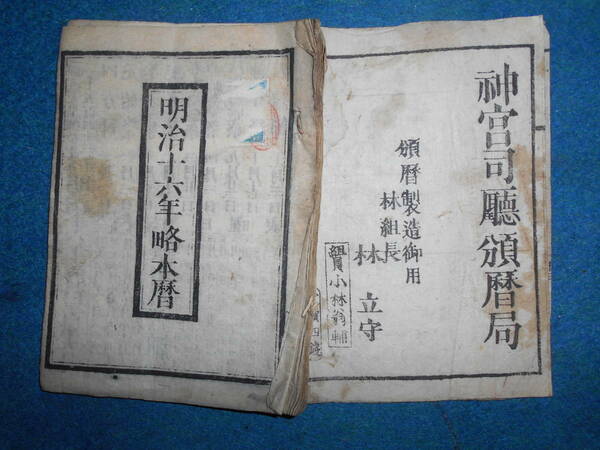 神宮司廳頒暦局
頒暦製造御用
林組長
林立守
小林
明治十六年略本暦